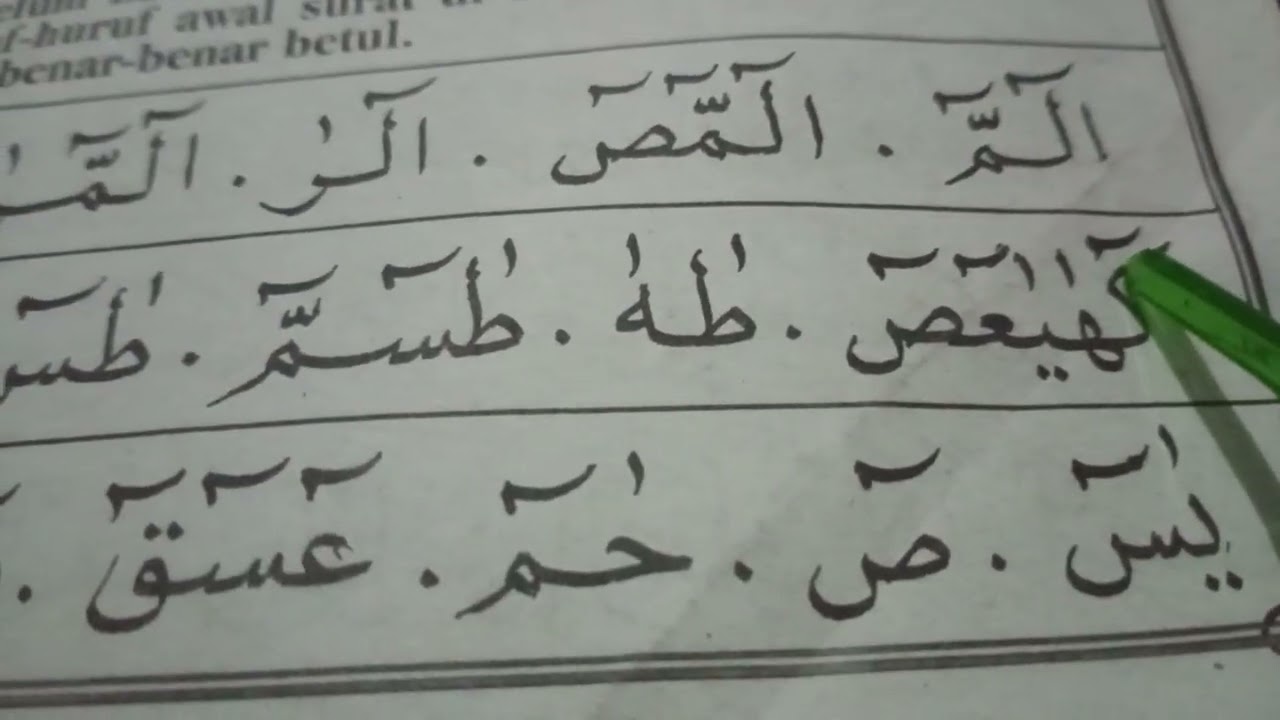 f-huruf awal surat
benar-benar betul.
الٓمّٓ . الٓمّٓصٓ . الٓرٰ . الٓمّٓ
كٓهٰيٰعٓصٓ . طٰهٰ . طٰسٓمّٓ . طٰسٓ
يٰسٓ . صٓ . حٰمٓ . عٓسٓقٓ .